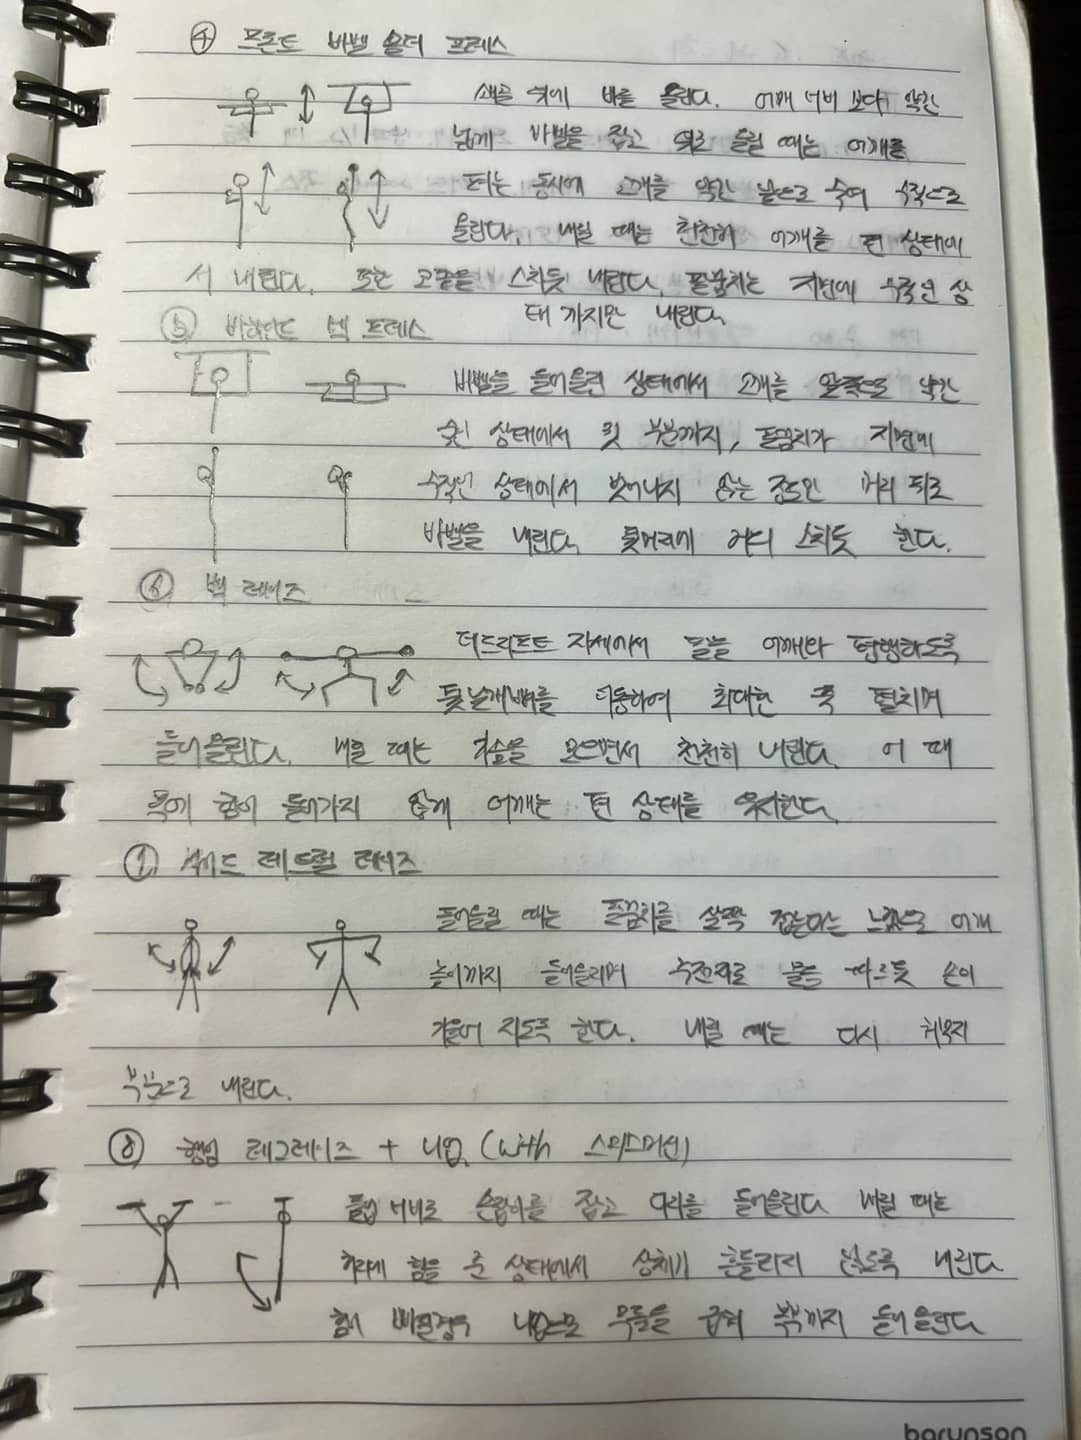 ④ 프론트 바벨 숄더 프레스
쇄골 위에 바를 올린다. 어깨 너비 보다 약간
넓게 바벨을 잡고 위로 들릴 때는 어깨를
펴는 동시에 고개를 약간 앞으로 숙여 수직으로
올린다. 내릴 때는 천천히 어깨를 편 상태에
서 내린다. 또한 코끝을 스치듯 내린다. 팔꿈치는 지면에 수직인 상
태 까지만 내린다.
⑤ 비하인드 넥 프레스
바벨을 들어올린 상태에서 고개를 앞쪽으로 약간
숙인 상태에서 귓 부분까지, 팔꿈치가 지면에
수직인 상태에서 벗어나지 않는 정도만 머리 뒤로
바벨을 내린다. 뒷머리에 스치듯 한다.
⑥ 벡 레이즈
데드리프트 자세에서 팔을 어깨와 평행하도록
뒷날개뼈를 이동하여 최대한 쭉 펼치며
들어올린다. 내릴 때는 가슴을 모으면서 천천히 내린다. 이 때
목에 힘이 들어가지 않게 어깨는 편 상태를 유지한다.
⑦ 사이드 레트럴 레이즈
들어올릴 때는 팔꿈치를 살짝 접는다는 느낌으로 어깨
높이까지 들어올리며 주전자로 물을 따르듯 손이
기울어 지도록 한다. 내릴 때는 다시 허벅지
부분으로 내린다.
⑧ 행잉 레그레이즈 + 니업 (with 스미스머신)
어깨 너비로 손잡이를 잡고 다리를 들어올린다 내릴 때는
힘을 준 상태에서 상체가 흔들리지 않도록 내린다
힘이 빠질경우 니업으로 무릎을 굽혀 복부까지 들어 올린다
barunson